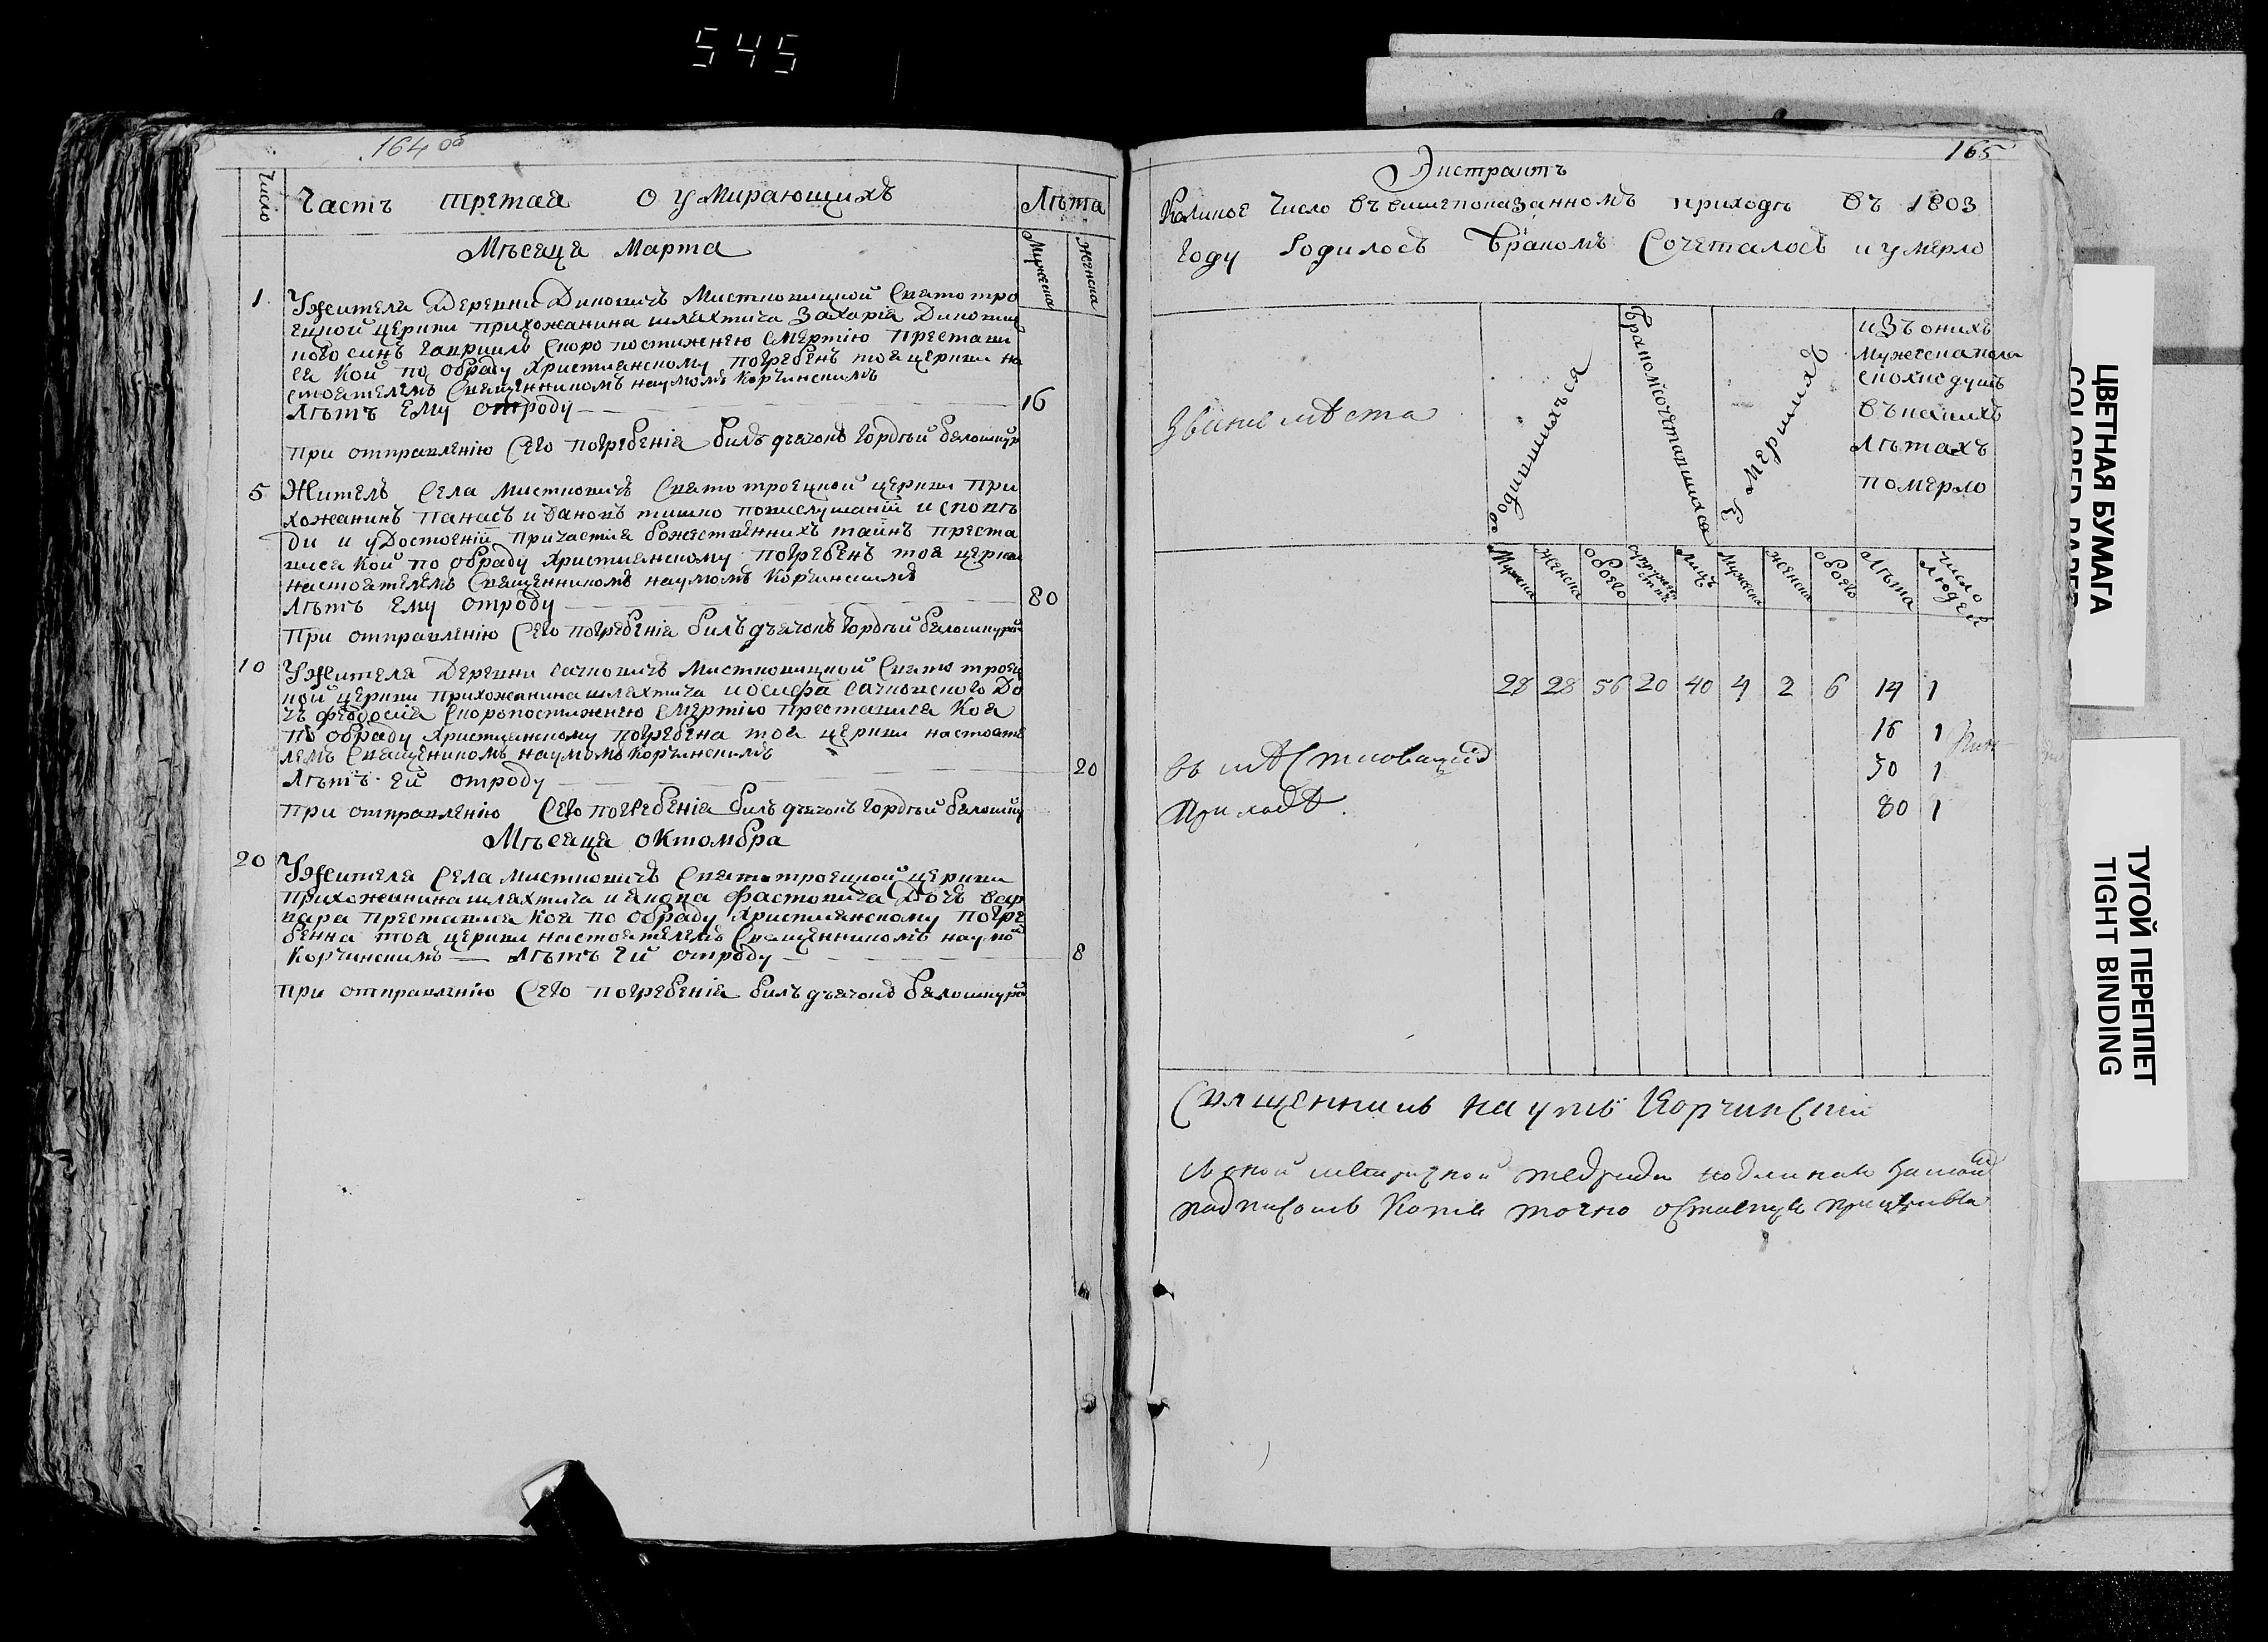 545
164 об
Число
Часть третая О умирающихъ
Лѣта
Мужеска
Женска
Мѣсяца Марта
1 Ужителя Деревни Диковичъ Мистковицкой Святотро
ецкой церкви прихожанина шляхтича Захарія Дикониц
кого синъ Гавриилъ Скоро постижнею Смертію престави
ся Кой по обраду Христианскому погребенъ тоя церкви на
стоятелемъ Священникомъ наумомъ Корчинскимъ
Лѣтъ Ему отроду 16
При отправлению Сего погребенія билъ дьячокъ Гордѣй белошкур
5 Житель Села Мистковичъ Святотроецкой церкви при
хожанинъ Панасъ
ди и удостоеній причастія божественнихъ таинъ преста
вися Кой по обраду Христианскому погребенъ тоя церкви
настоятелемъ Священникомъ наумомъ Корчинскимъ
Лѣтъ Ему отроду 80
При отправлению Сего погребенія билъ дьячокъ Гордѣй белошкуръ
10 Ужителя Деревни Сачковичъ Мистковицкой Свято троец
кой церкви прихожанина шляхтича иосифа Сачковского До
чъ феодосія Скоропостижнею Смертію преставися Коя
по обраду Христианскому погребена тоя церкви настояте
лемъ Священикомъ наумомъ Корчинскимъ
Лѣтъ Ей отроду 20
При отправлению Сего погребенія билъ дьячокъ Гордѣй белошкур
Мѣсяца октомбра
20 Ужителя Села Мистковичъ Святотроецкой церкви
прихожанина шляхтича иякова Фастовича Дочъ вар
вара преставися Коя по обраду Христианскому погре
бенна тоя церкви настоятелемъ Священникомъ наумо
Корчинскимъ Лѣтъ Ей отроду 8
При отправлению Сего погребенія билъ дьячокъ белошкуръ
165
Экстрактъ
Коликое Число въ вишепоказанномъ приходѣ въ 1803
Году Родилось Бракомъ Сочеталось и умерло
Звание мѣста
Родившихъся
Бракомсочетавшихся
Умершихъ
изъ онихъ
мужеска пола
сколко душъ
въ какихъ
лѣтахъ
померло
Мужска
Женска
обоего
супружествъ
Лицъ
Мужеска
Женска
обоего
Лѣта
число людей
28 28 56 20 40 4 2 6 14 1
16 1
въ мѣстковицкой 50 1
приходѣ 80 1
Священникъ Наумъ Корчинскій
ЦВЕТНАЯ БУМАГА
COLORED PAPER
ТУГОЙ ПЕРЕПЛЕТ
TIGHT BINDING